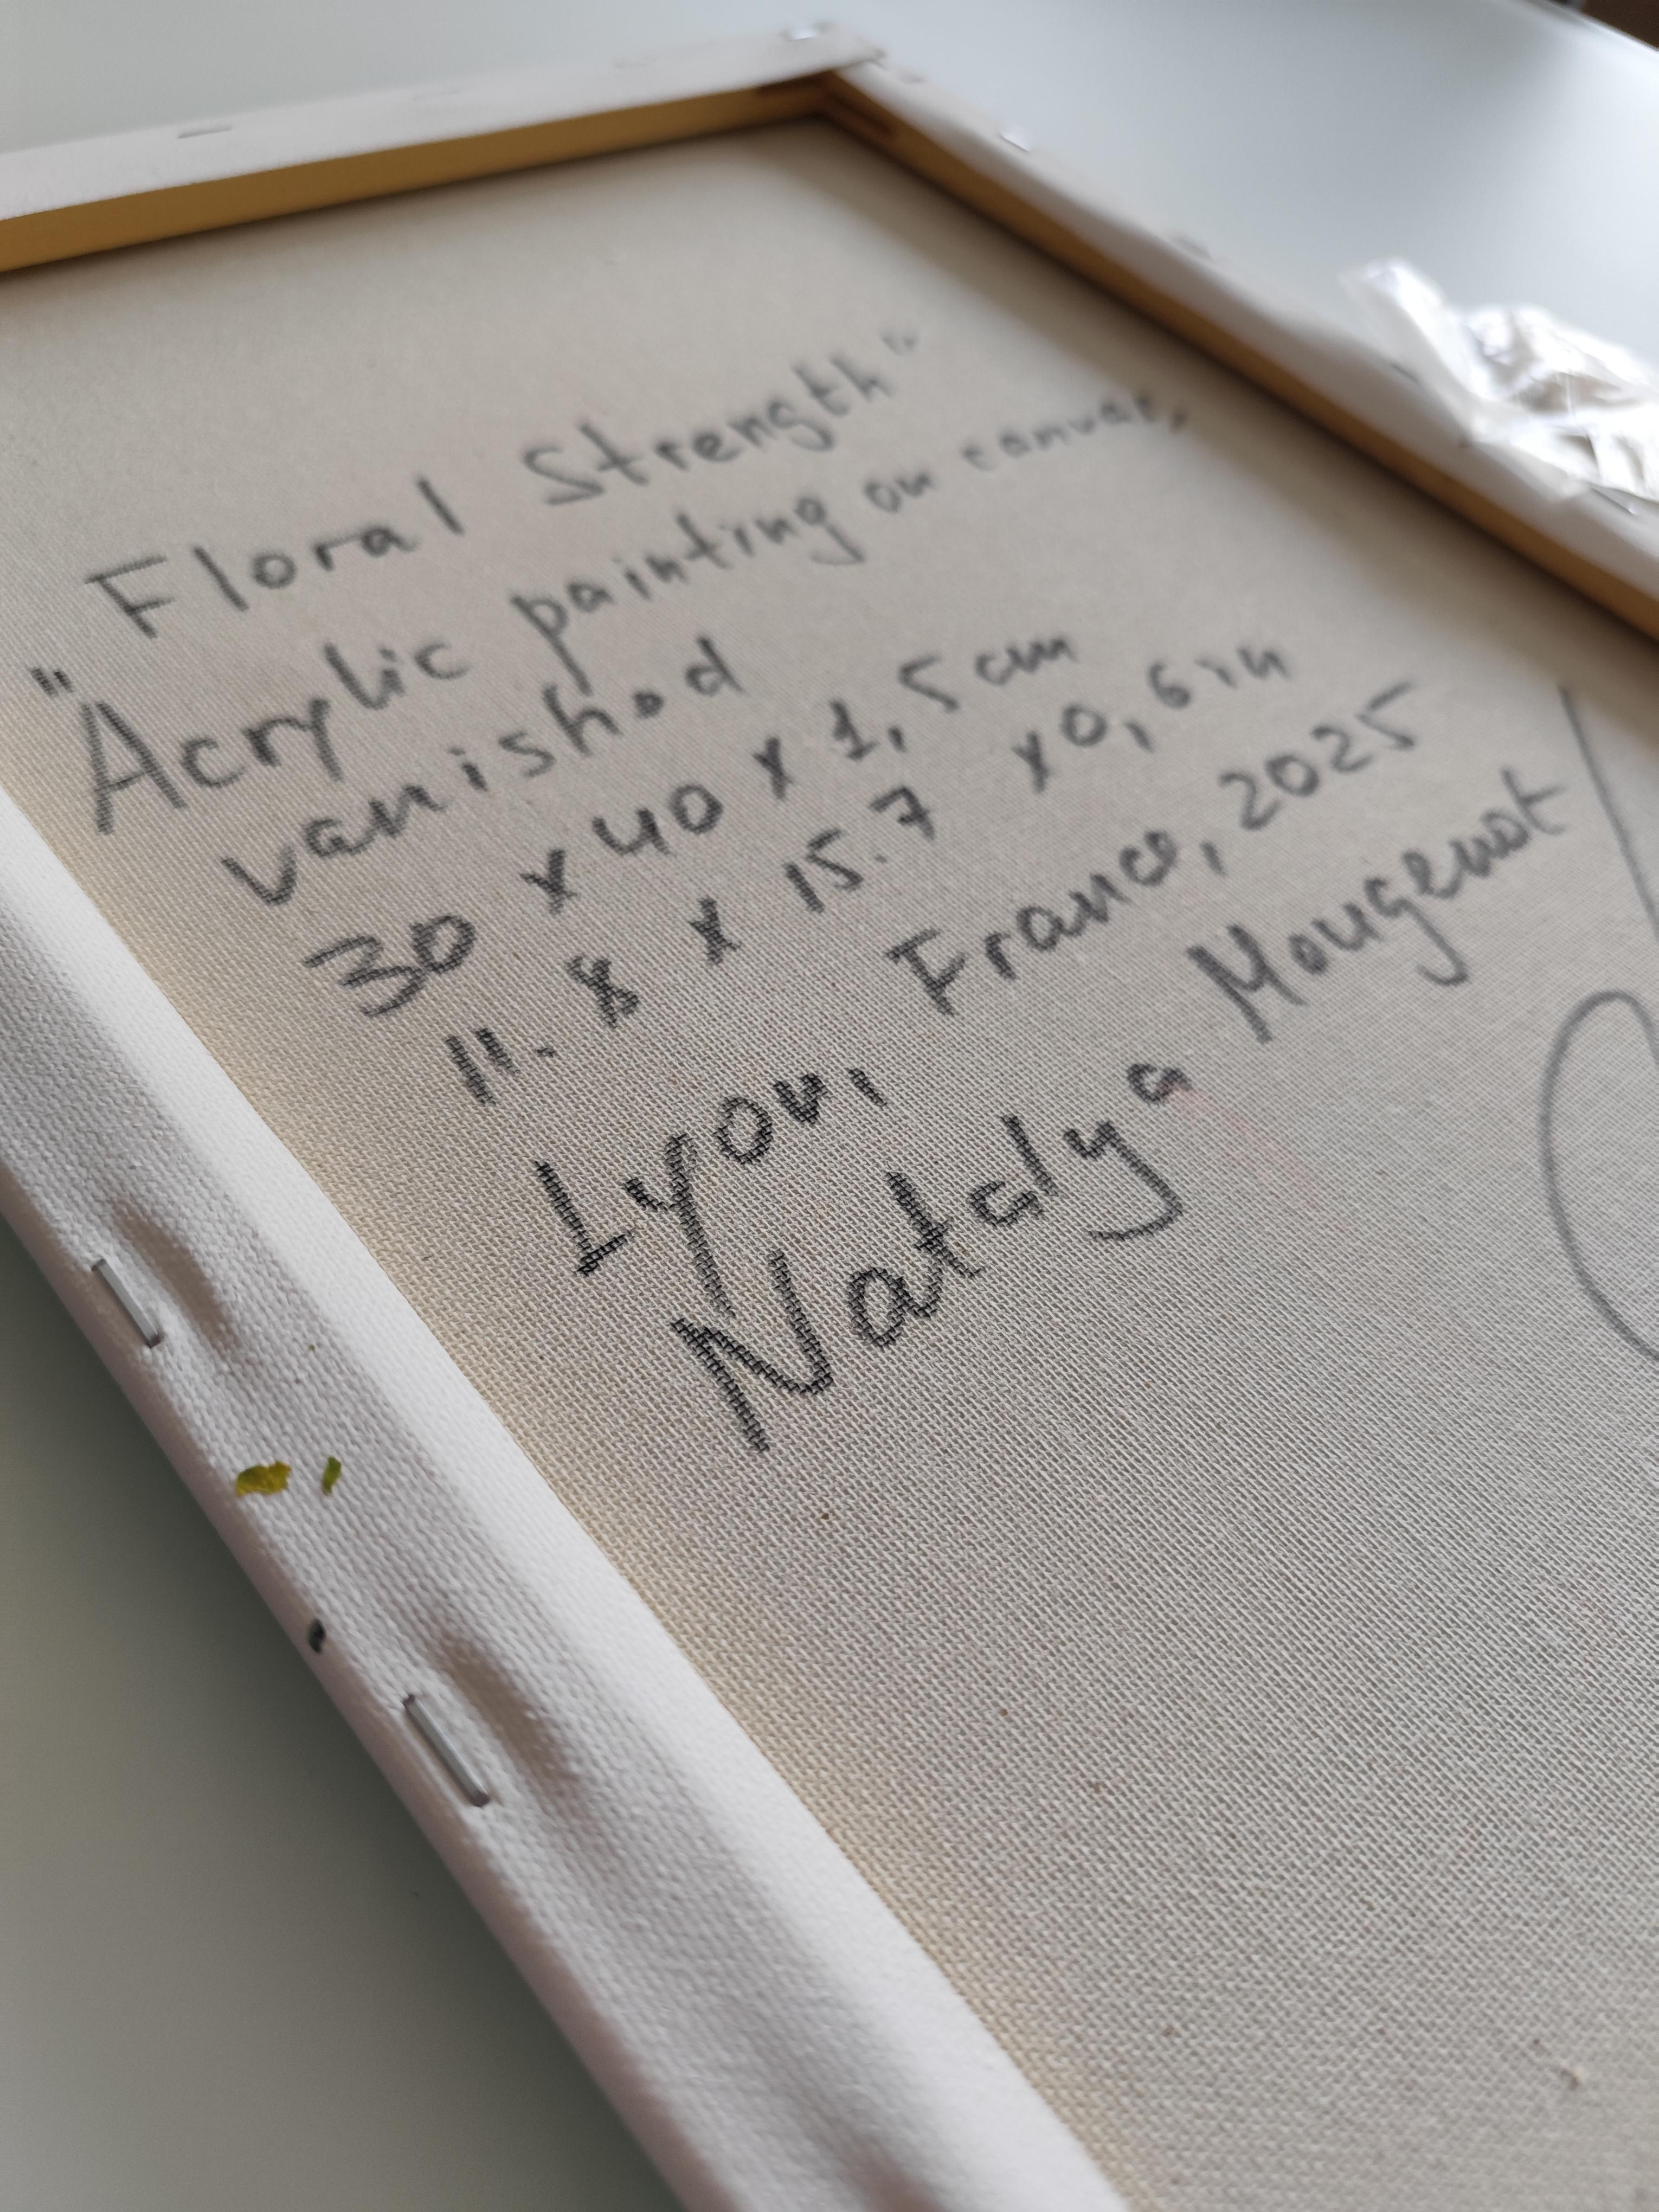 "Floral Strength"
Acrylic painting on canvas,
vanished
30 x 40 x 1,5 cm
11.8 x 15.7 x 0,6 in
Lyon, France, 2025
Nataly a Mougenot